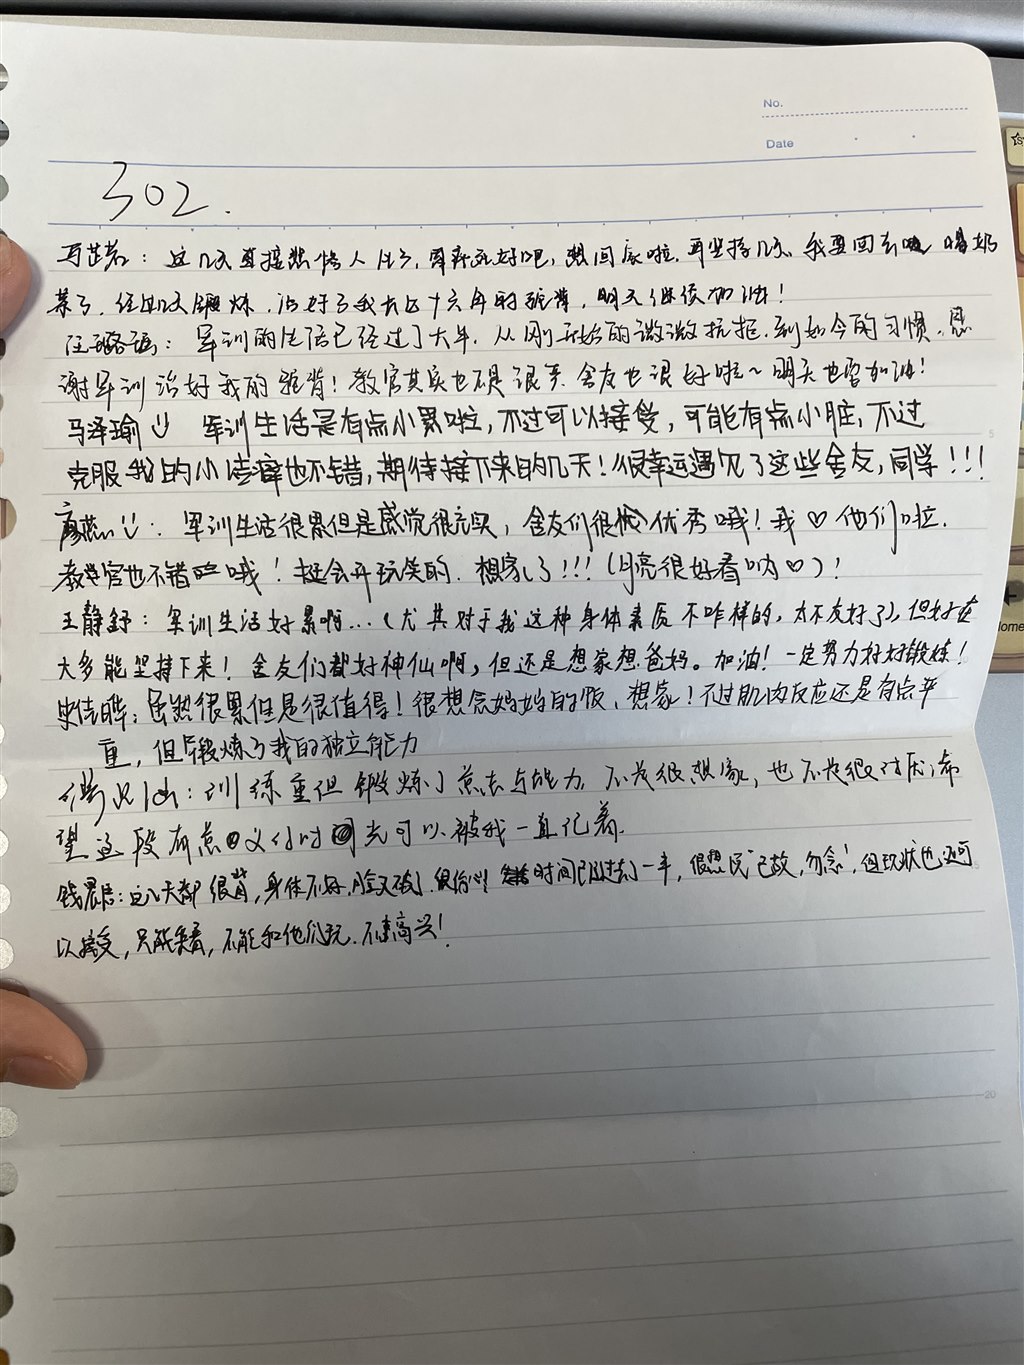 No.
Date
302.
这几天直接悲惨人生了,军训还好吧,想回家啦.再坚持几天 我要回去 喝奶
茶了.经几天锻炼,治好了我十六年的驼背,明天继续加油!
汪璐瑶:军训的生活已经过了大半.从刚开始的微微抗拒.到如今的习惯.感
谢军训治好我的驼背!教官其实也不是很凶 舍友也很好啦~明天也要加油!
马泽瑜 军训生活是有点小累啦,不过可以接受,可能有点小脏,不过
克服我的小洁癖也不错,期待接下来的几天!很幸运遇见了这些舍友,同学!!!
军训生活很累但是感觉很充实,舍友们很优秀哦!我♡他们啦.
教官也不错哦!挺会开玩笑的.想家了!!!(月亮很好看呐♡)!
王静舒:军训生活好累啊...(尤其对于我这种身体素质不咋样的,太不友好了),但好在
大多能坚持下来!舍友们都好神仙啊,但还是想家想爸妈。加油!一定努力好好锻炼!
史佳晔:虽然很累但是很值得!很想念妈妈的饭,想家!不过肌肉反应还是有点严
重,但锻炼了我的独立能力
训练重但锻炼了意志与能力,不是很想家,也不是很讨厌,希
望这段有意义的时光可以被我一直记着.
钱晨启:这几天都很背,身体不好,脸又破了.军训时间已过去一半,很想"已故,勿念!但现状也还可
以接受,只能看,不能和他们玩.不高兴!